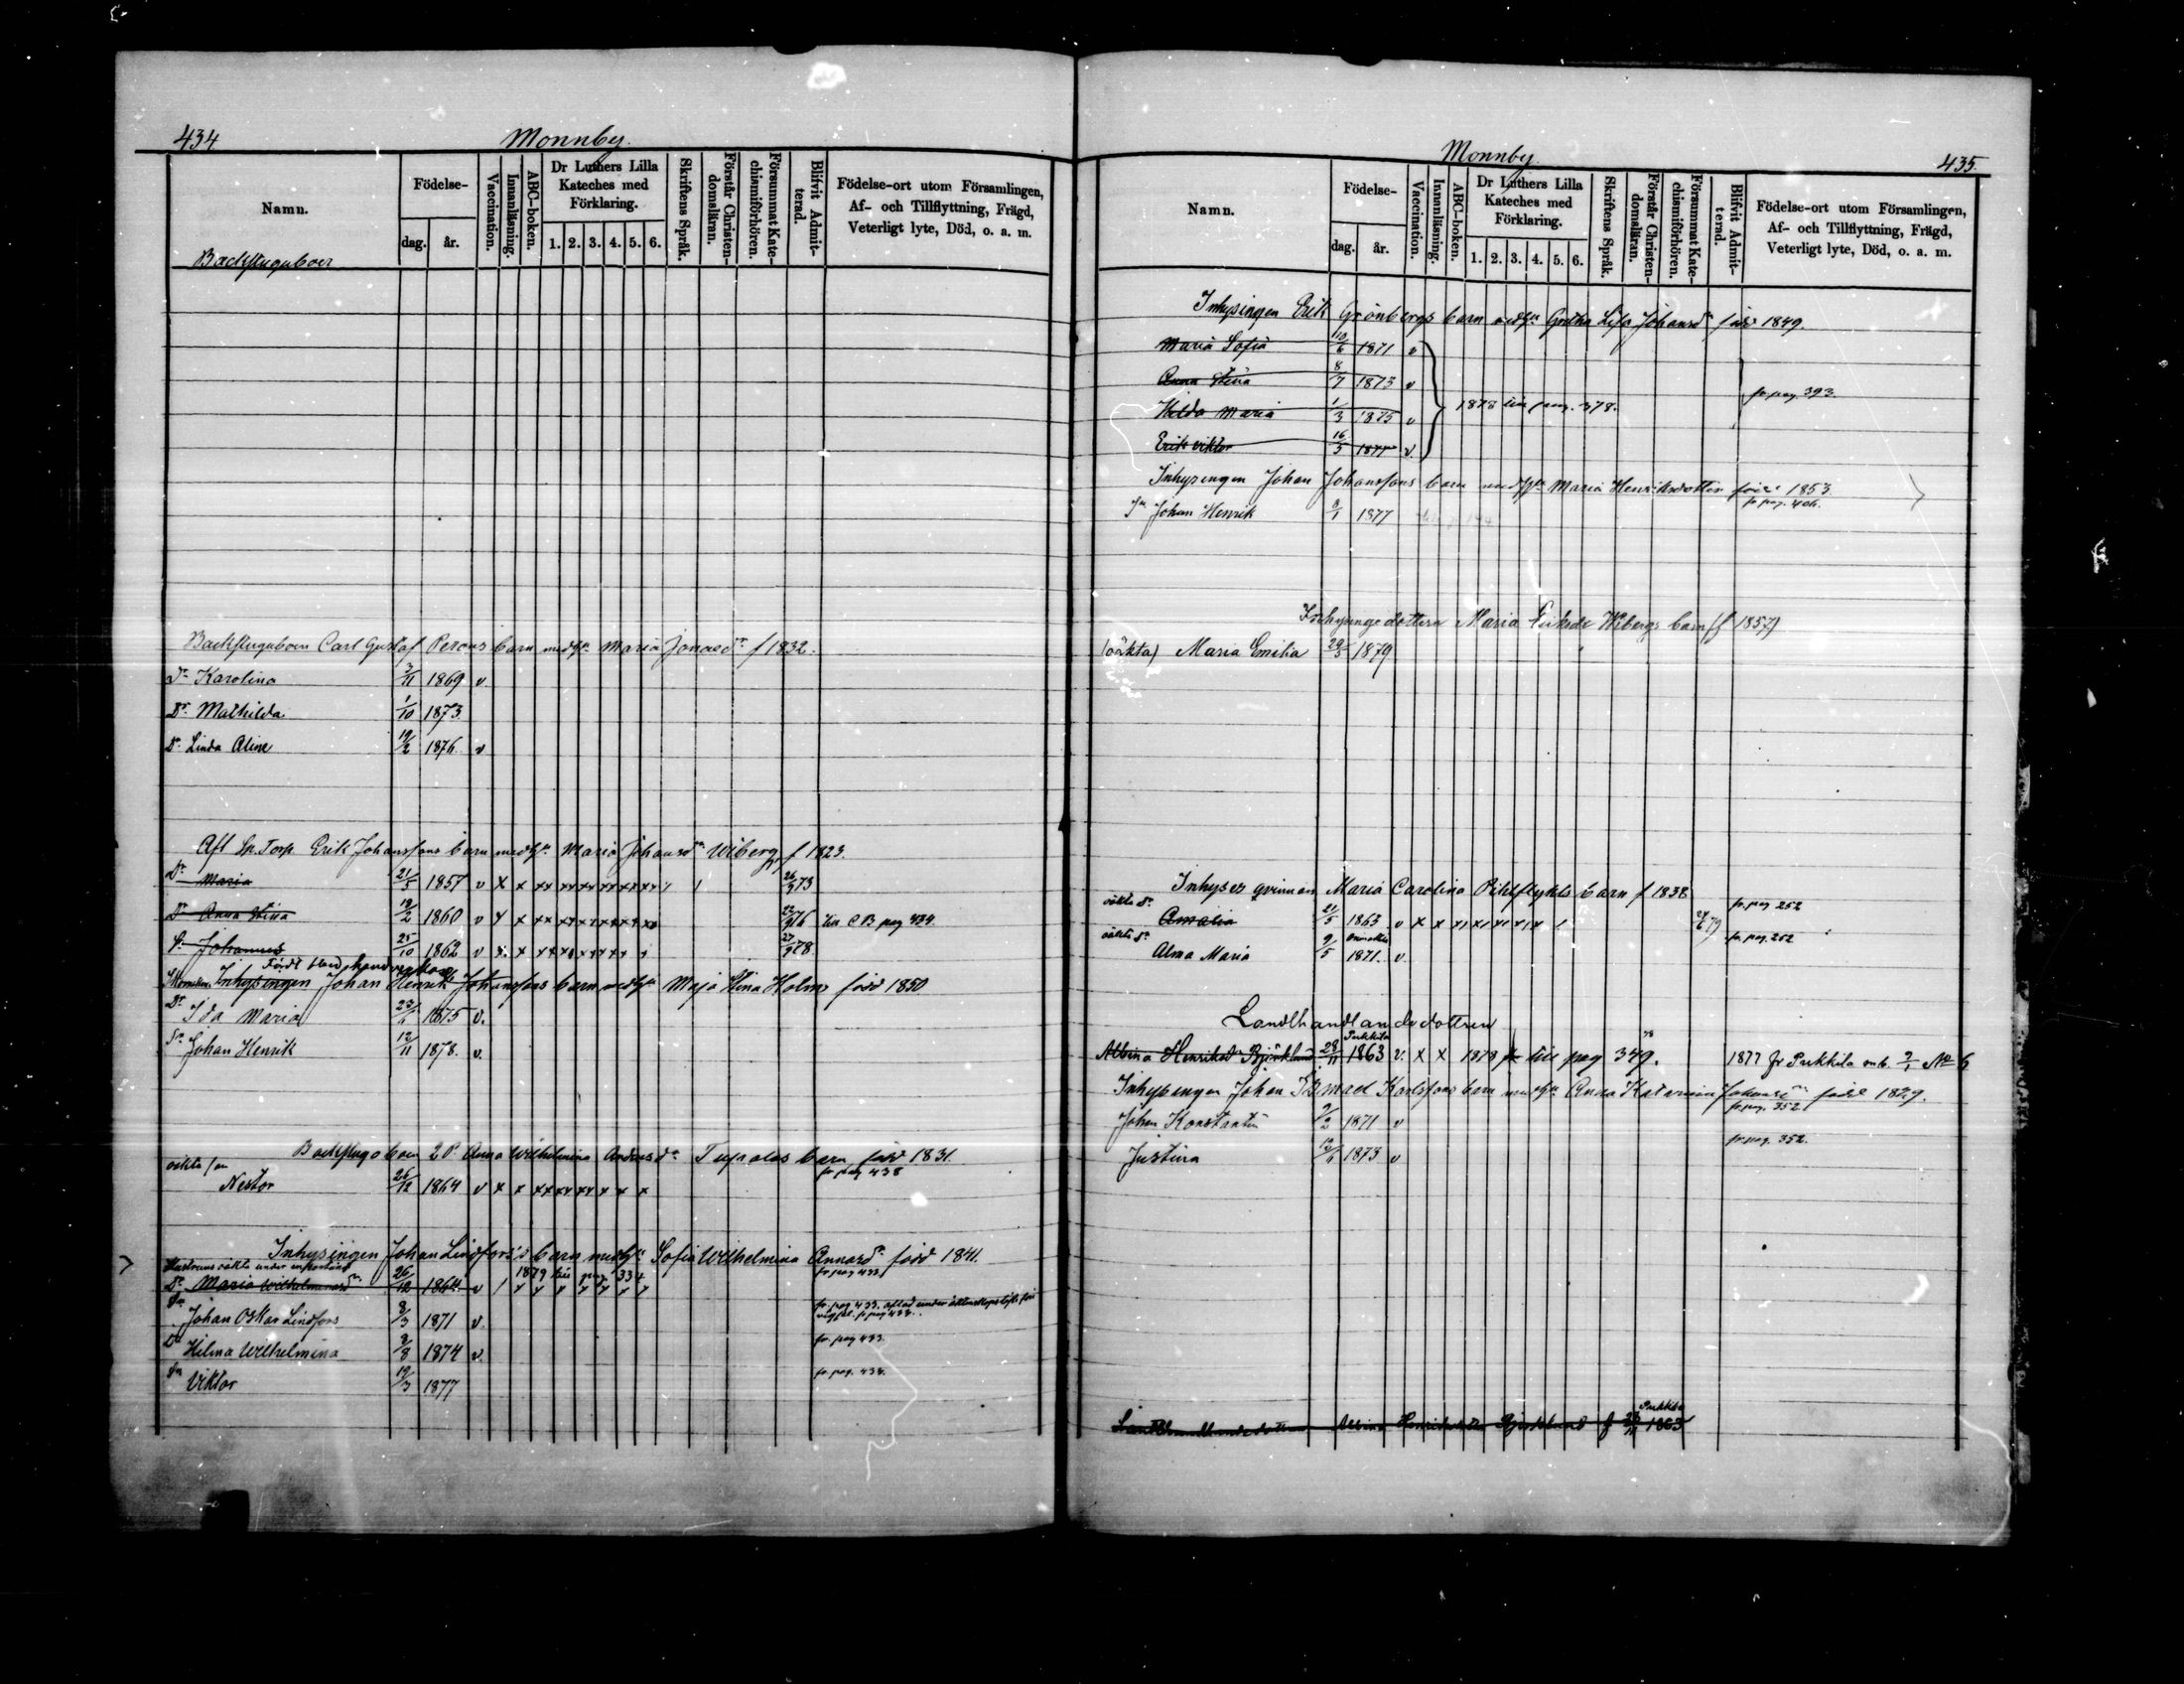 434
Monnby.
Namn.
Födelse-
dag.
år.
Vaccination.
Innanläsning.
ABC-boken.
Dr Luthers Lilla
Kateches med
Förklaring.
1. 2. 3. 4. 5. 6.
Skriftens Språk.
Förstår Christen-
domsläran.
Försummat Kate-
chismiförhören.
Blifvit Admit-
terad.
Födelse-ort utom Församlingen,
Af- och Tillflyttning, Frägd,
Veterligt lyte, Död, o. a. m.
Backstuguboer
Backstuguboen Carl Gustaf Persons barn med h:u Maria Jonasdr f 1832.
Dr Karolina 3/11 1869 v
Dr Mathilda 1/10 1873
Dr Linda Aline 19/2 1876 v
Aft Sp. Torp Erik Johanssons barn med h:u Maria Johansdr Wiberg f 1823.
Dr Maria 21/5 1857 v x x xx xx xx xx xx xx 26/9 73
Dr Anna Stina 19/2 1860 v x x xx 22/9 76 till CB pag 434
S. Johannes 25/10 1862 v x x 27/9 78
Johan Henrik Johanssons barn med h:u Maja Stina Holms född 1850
Dr Ida Maria 23/6 1875 v.
Sn Johan Henrik 12/11 1878. v.
Backstugoboen Anna Wilhelmina Andersdr barn född 1831.
oäkta son
fr pag 438
Nestor 26/12 1864 v x x xx xx xx x x x
Inhysingen Johan Lindfors's barn med h:u Sofia Wilhelmina Annasdr född 1841.
fr pag 433
1879 till pag 334
Dr Maria Wilhelmina 26/12 1864 v
Sn Johan Oskar Lindfors 8/3 1871 v.
fr pag 433.
Dr Hilma Wilhelmina 3/8 1874 v.
fr. pag 433
Sn Viktor 19/3 1877
fr. pag. 433.
Monnby.
435.
Namn.
Födelse-
dag.
år.
Vaccination.
Innanläsning.
ABC-boken.
Dr Luthers Lilla
Kateches med
Förklaring.
1. 2. 3. 4. 5. 6.
Skriftens Språk.
Förstår Christen-
domsläran.
Försummat Kate-
chismiförhören.
Blifvit Admit-
terad.
Födelse-ort utom Församlingen,
Af- och Tillflyttning, Frägd,
Veterligt lyte, Död, o. a. m.
Inhysingen Erik Grönbergs barn med h:u Gretha Lisa Johansdr född 1849.
Maria Sofia 10/6 1871 v
Anna Stina 8/7 1873 v
fr. pag. 393.
Hilda Maria 1/3 1875 v 1878 till pag. 378.
Erik Viktor 16/5 1877 v.
Inhysingen Johan Johanssons barn med h:u Maria Henriksdotter född 1853
Sn Johan Henrik 3/1 1877 fr pag. 406.
Inhysingedottern Maria Wibergs barn (f 1857)
(oäkta) Maria Emilia 29/3 1879
Inhyses qvinnan Maria Carolina barn f 1838
oäkta dr
fr. pag 252
Amalia 21/5 1863 v x x
oäkta dr
fr. pag. 252
Alma Maria 9/5 1871. v.
Landthandlandedottren
Albina Henriksdr Björklund 28/11 Pukkila 1863 v. x x 1878 till pag 349. 1877 fr Pukkila m.b. 2/1 No 6
Inhysingen Johan Ismael Karlssons barn med h:u Anna Katerina Johansdr född 1829.
fr pag. 352
Johan Konstantin 9/2 1871 v
fr pag. 352.
Justina 12/6 1873 v
Pukkila
Landthandlandedottren Albina Henriksdotter Björklund f 28/11 1863